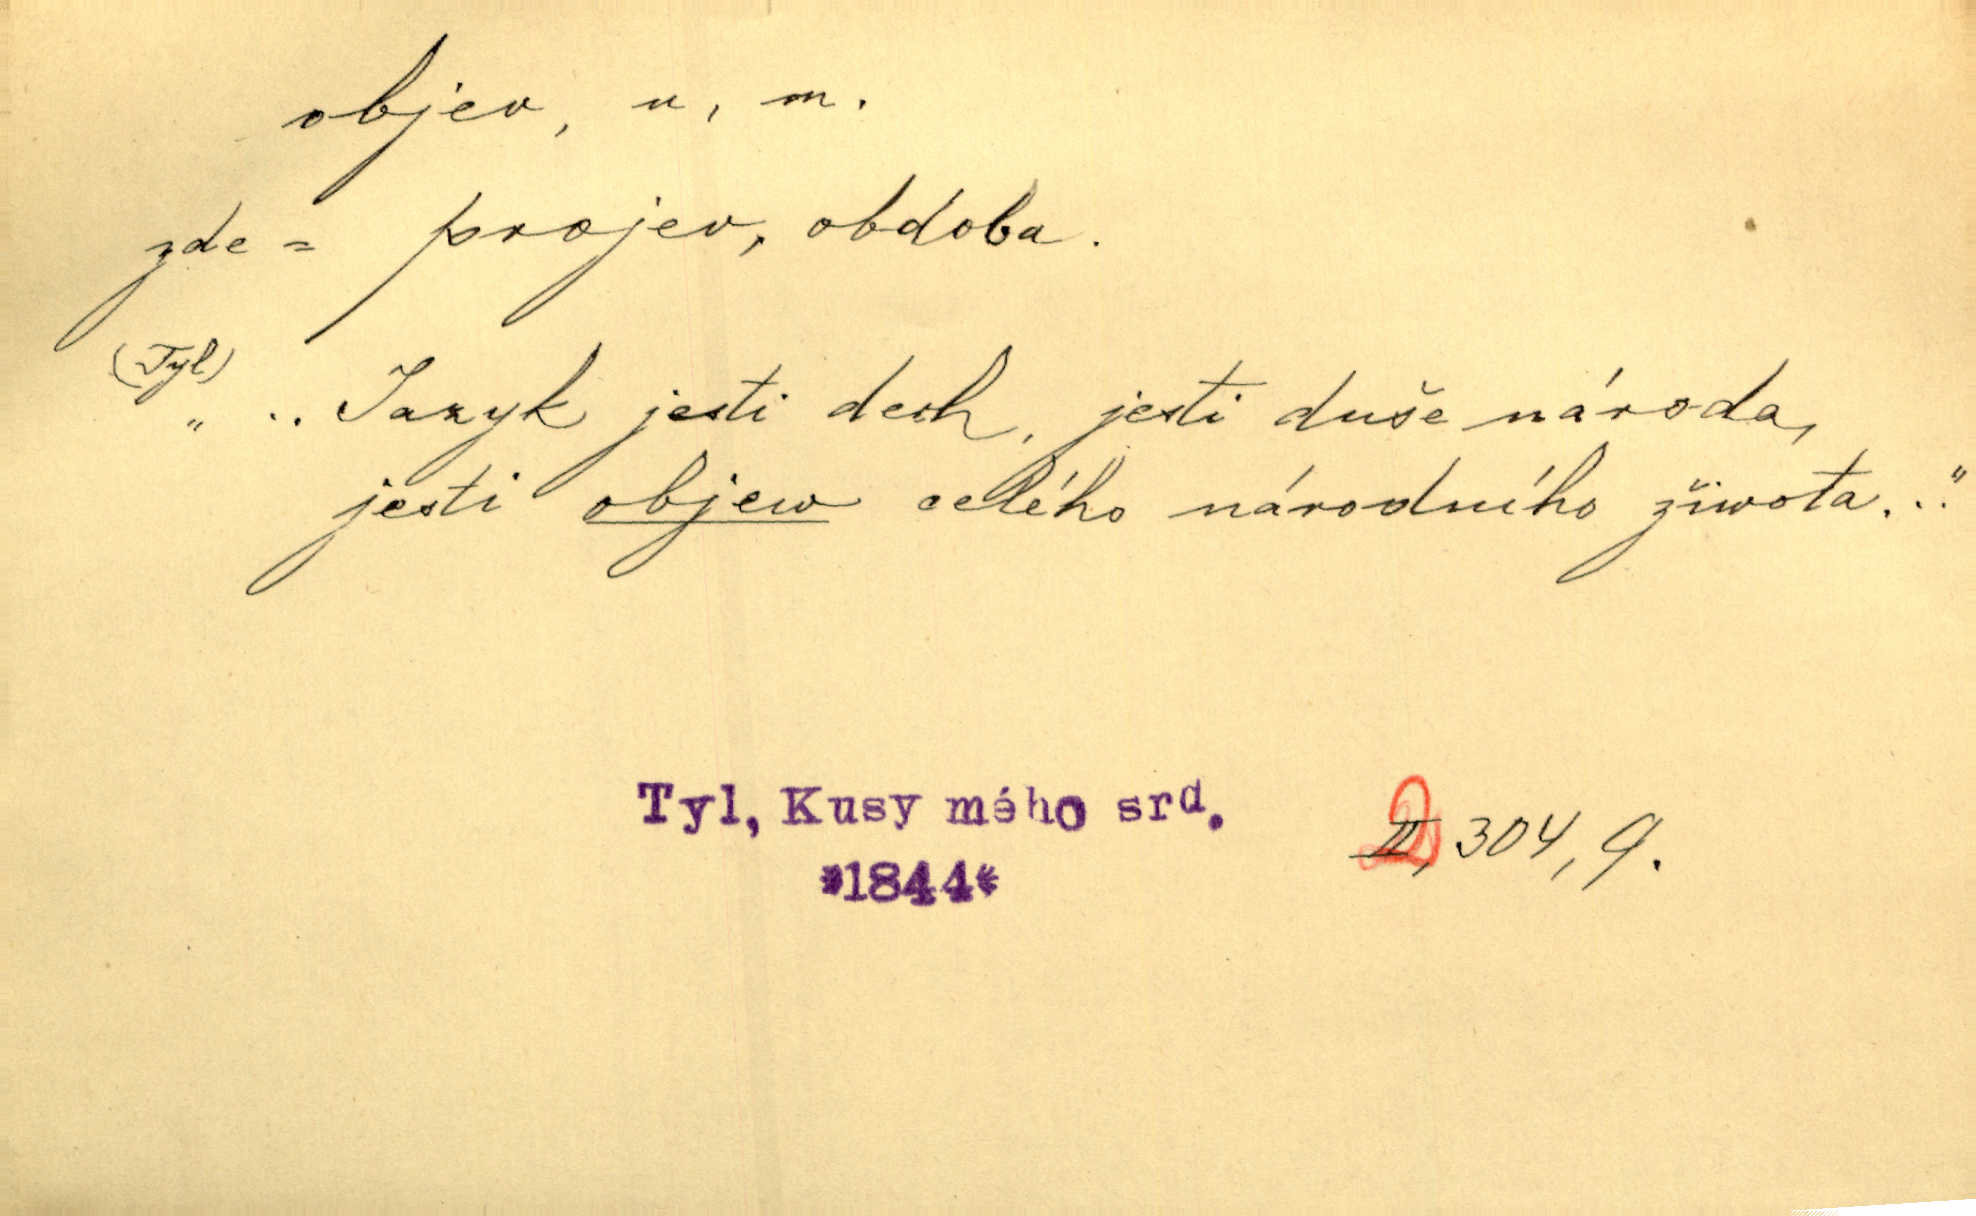 objev, u, m.
zde = projev, obdoba.
(Tyl)
„ .. Jazyk jesti dech, jesti duše národa,
jesti objew celého národního žiwota..."
Tyl, Kusy mého srd. 2
*1844* II, 304, 9.